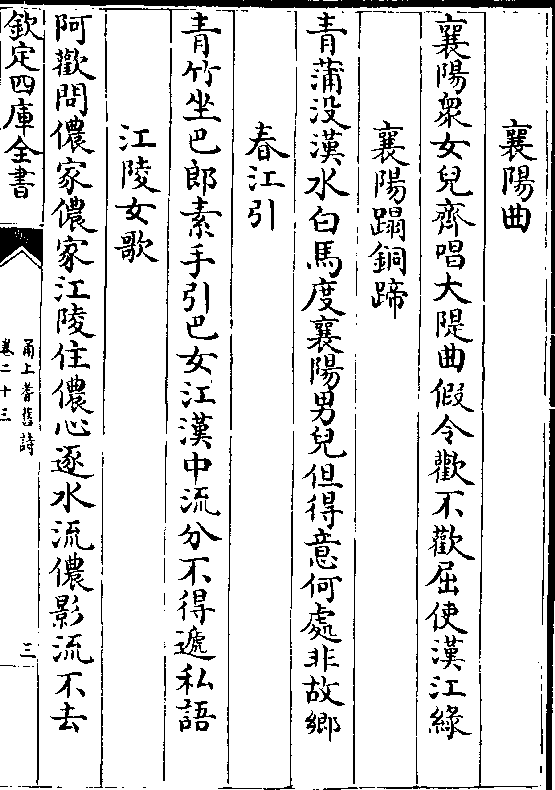 襄陽曲
襄陽衆女兒齊唱大隄曲假令歡不歡屈使漢江緑
襄陽蹋銅蹄
青蒲没漢水白馬度襄陽男兒但得意何處非故鄉
春江引
青竹坐巴郎素手引巴女江漢中流分不得遞私語
江陵女歌
阿歡問儂家儂家江陵住儂心逐水流儂影流不去
欽定四庫全書
甬上耆舊詩
卷二十三
三